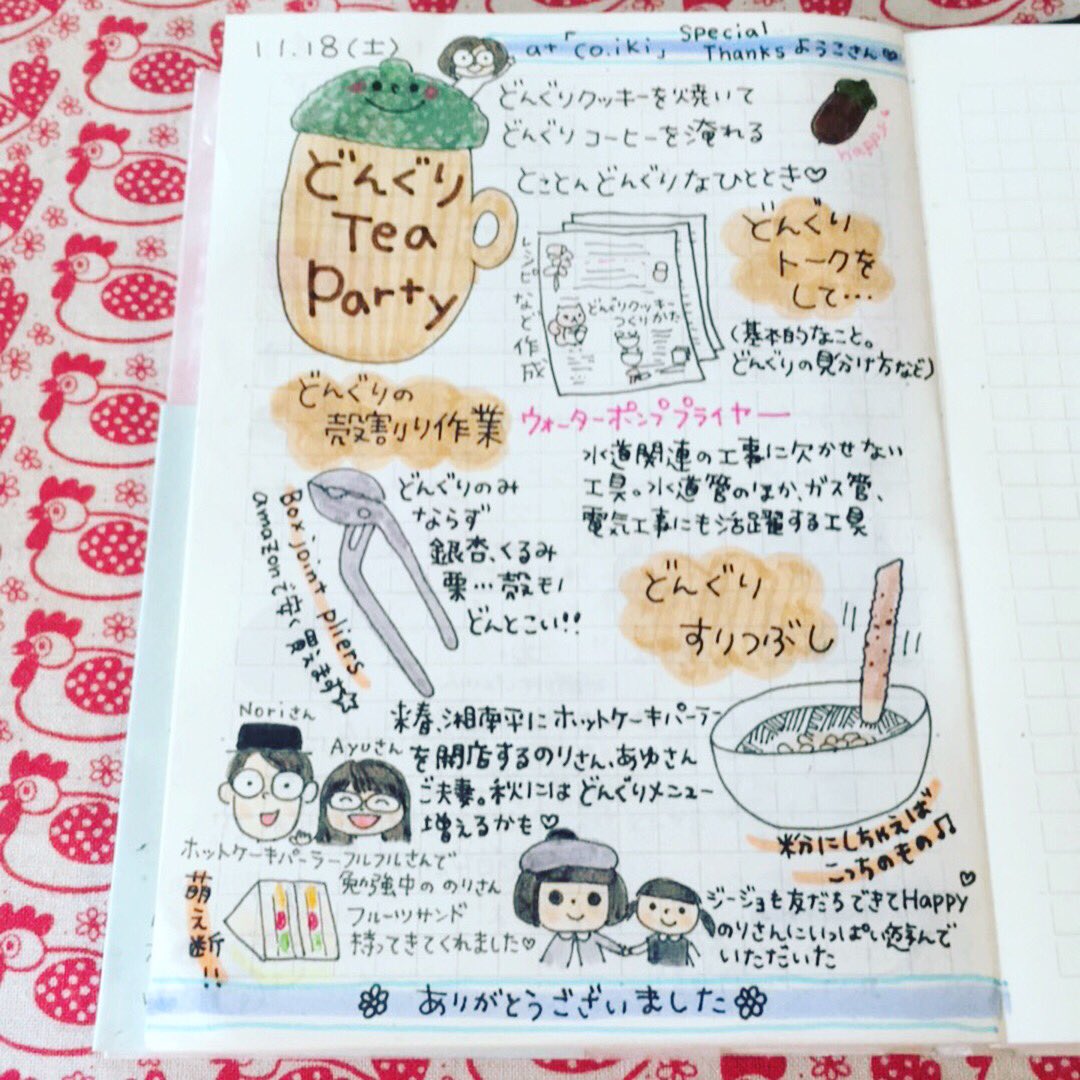 11.18(土)
at「co.iki」 Special Thanks ようこさん
どんぐりクッキーを焼いて
どんぐりコーヒーを淹れる
とことんどんぐりなひととき♡
happy
どんぐり
Tea
Party
レシピなど作成
どんぐりクッキー
つくりかた
どんぐり
トークを
して…
(基本的なこと。
どんぐりの見分け方など)
どんぐりの
殻割り作業
ウォーターポンププライヤー
水道関連の工事に欠かせない
工具。水道管のほか、ガス管、
電気工事にも活躍する工具
Box joint pliers
amazonで安く買えます☆
どんぐりのみ
ならず
銀杏、くるみ
栗…殻モノ
どんとこい!!
どんぐり
すりつぶし
粉分にしちゃえば
こっちのもの♫
Noriさん
Ayuさん
来春、湘南平にホットケーキパーラー
を開店するのりさん、あゆさん
ご夫妻。秋にはどんぐりメニュー
増えるかも♡
ホットケーキパーラーフルフルさんで
勉強中ののりさん
フルーツサンド
持ってきてくれました♡
萌え断!!
ジージョも友だちできてHappy♡
のりさんにいっぱい遊んで
いただいた
ありがとうございました